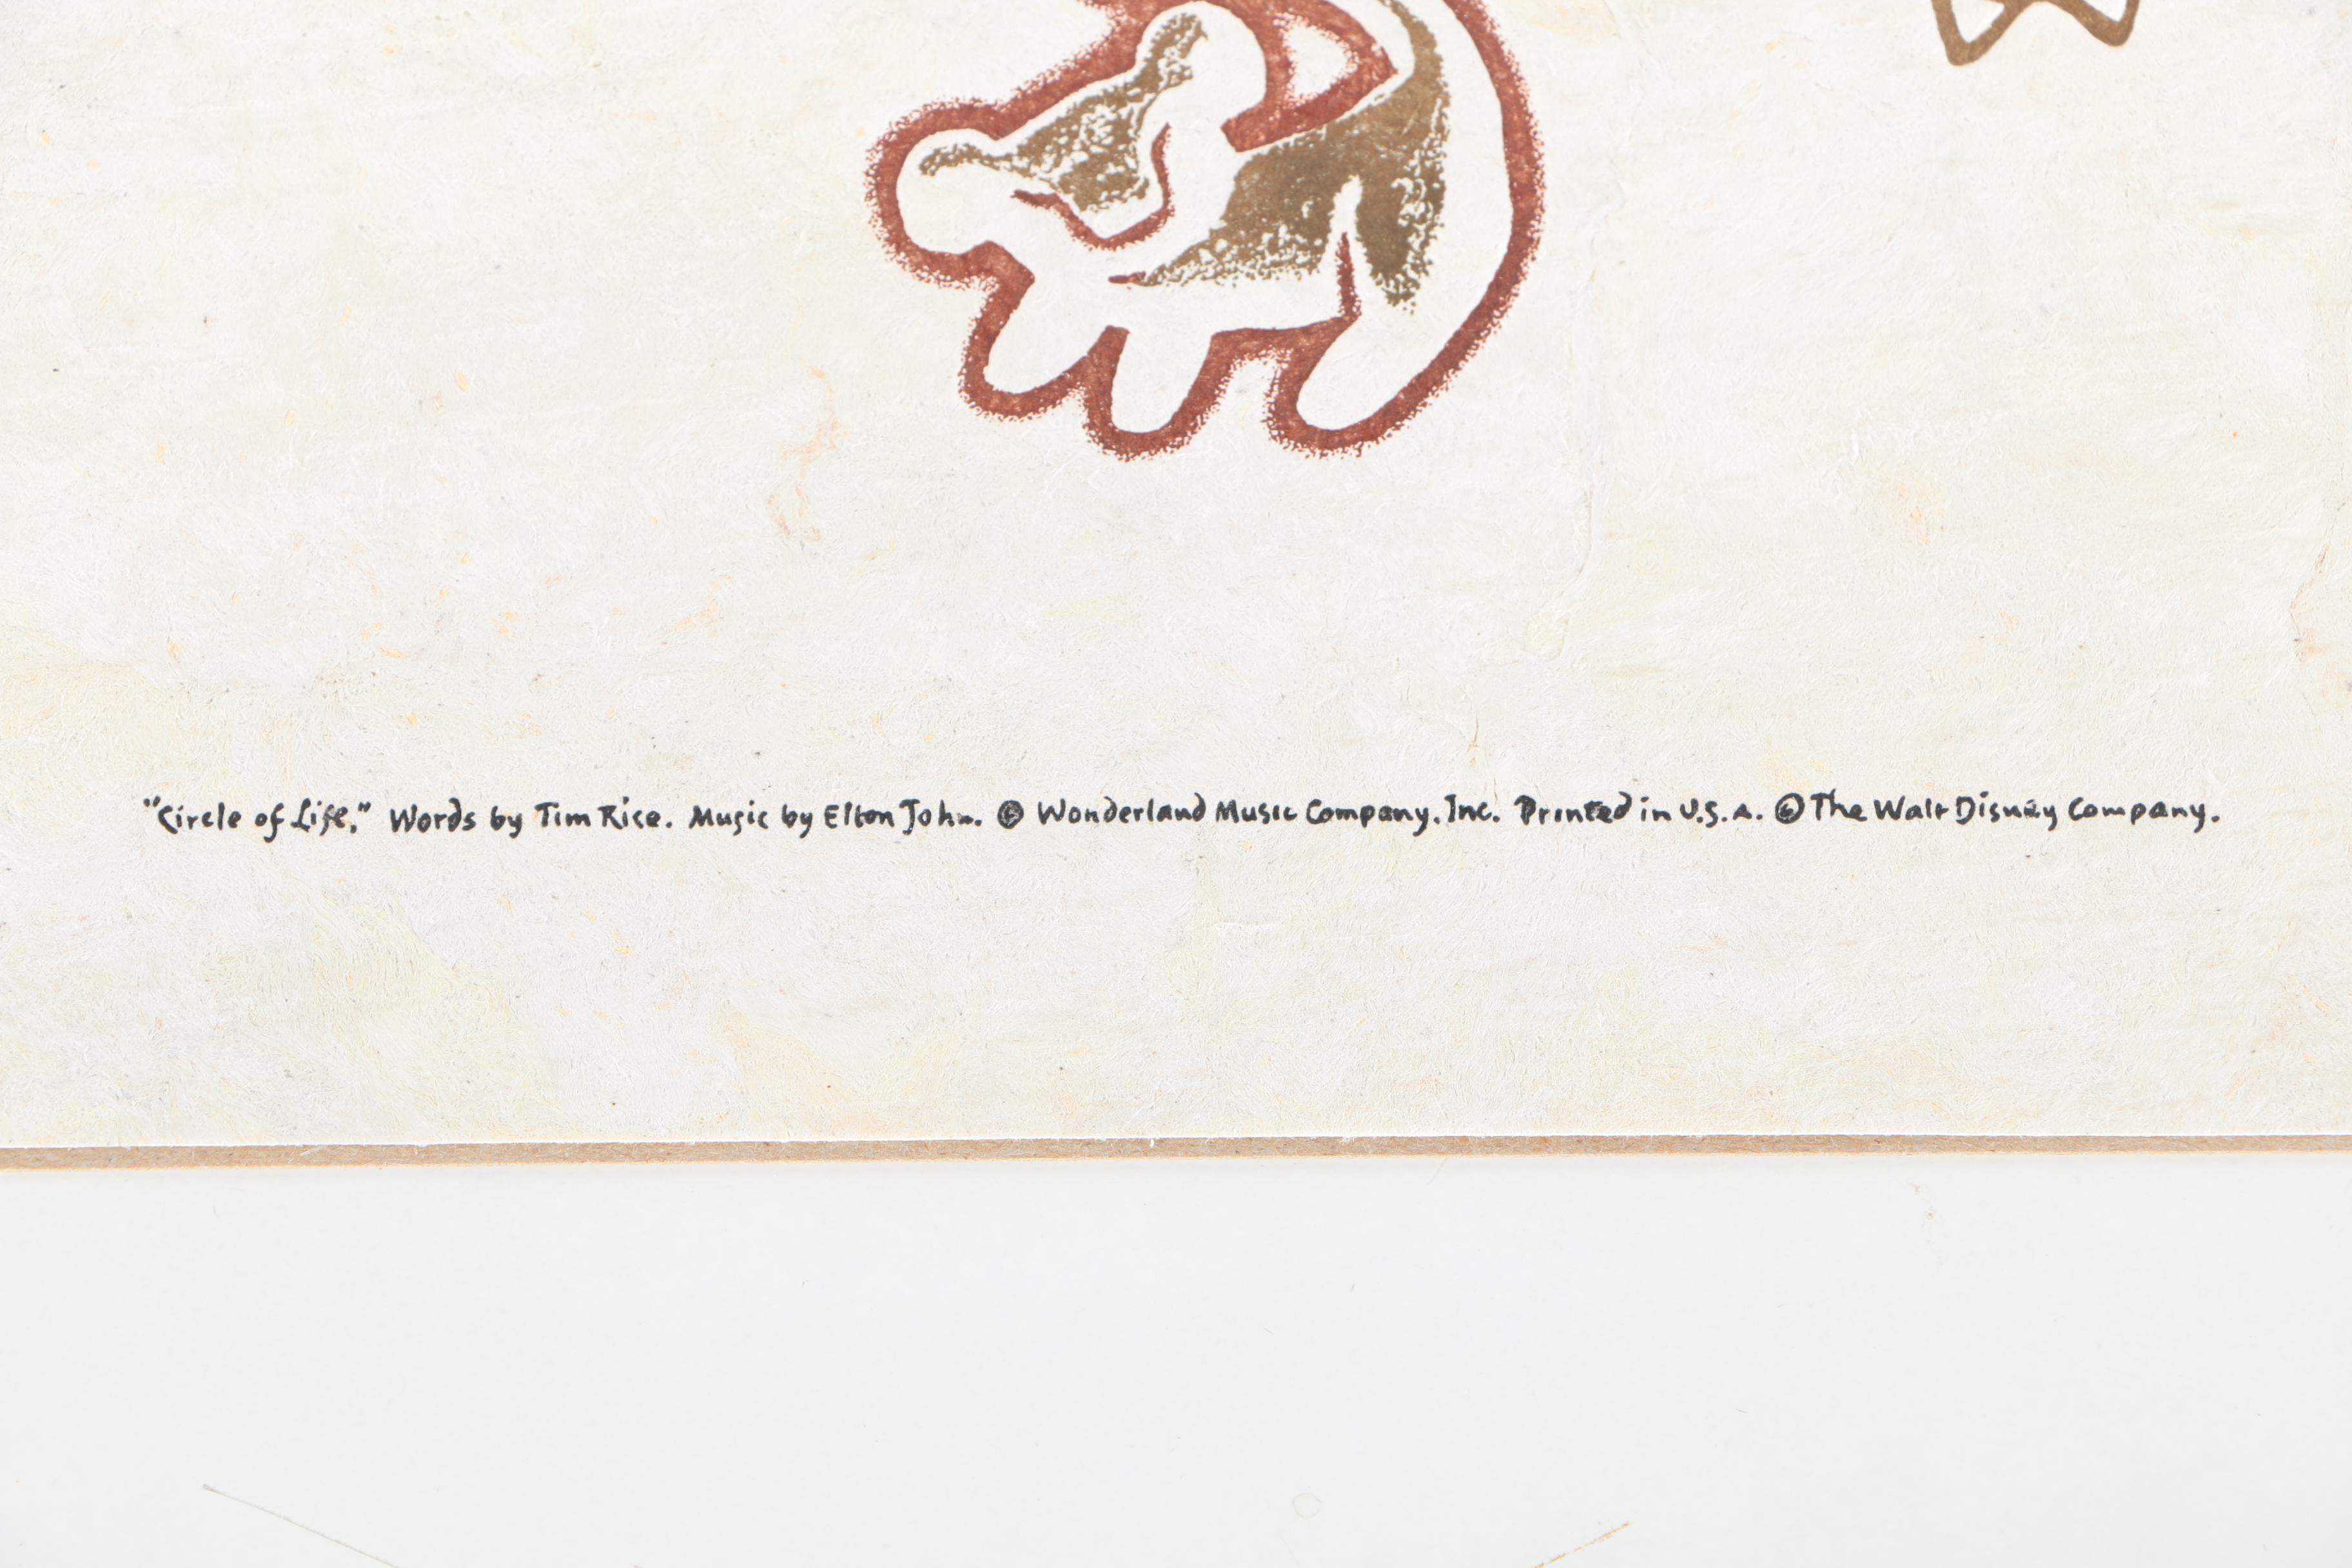 "Circle of Life," Words by Tim Rice. Music by Elton John. © Wonderland Music Company, Inc. Printed in U.S.A. © The Walt Disney Company.